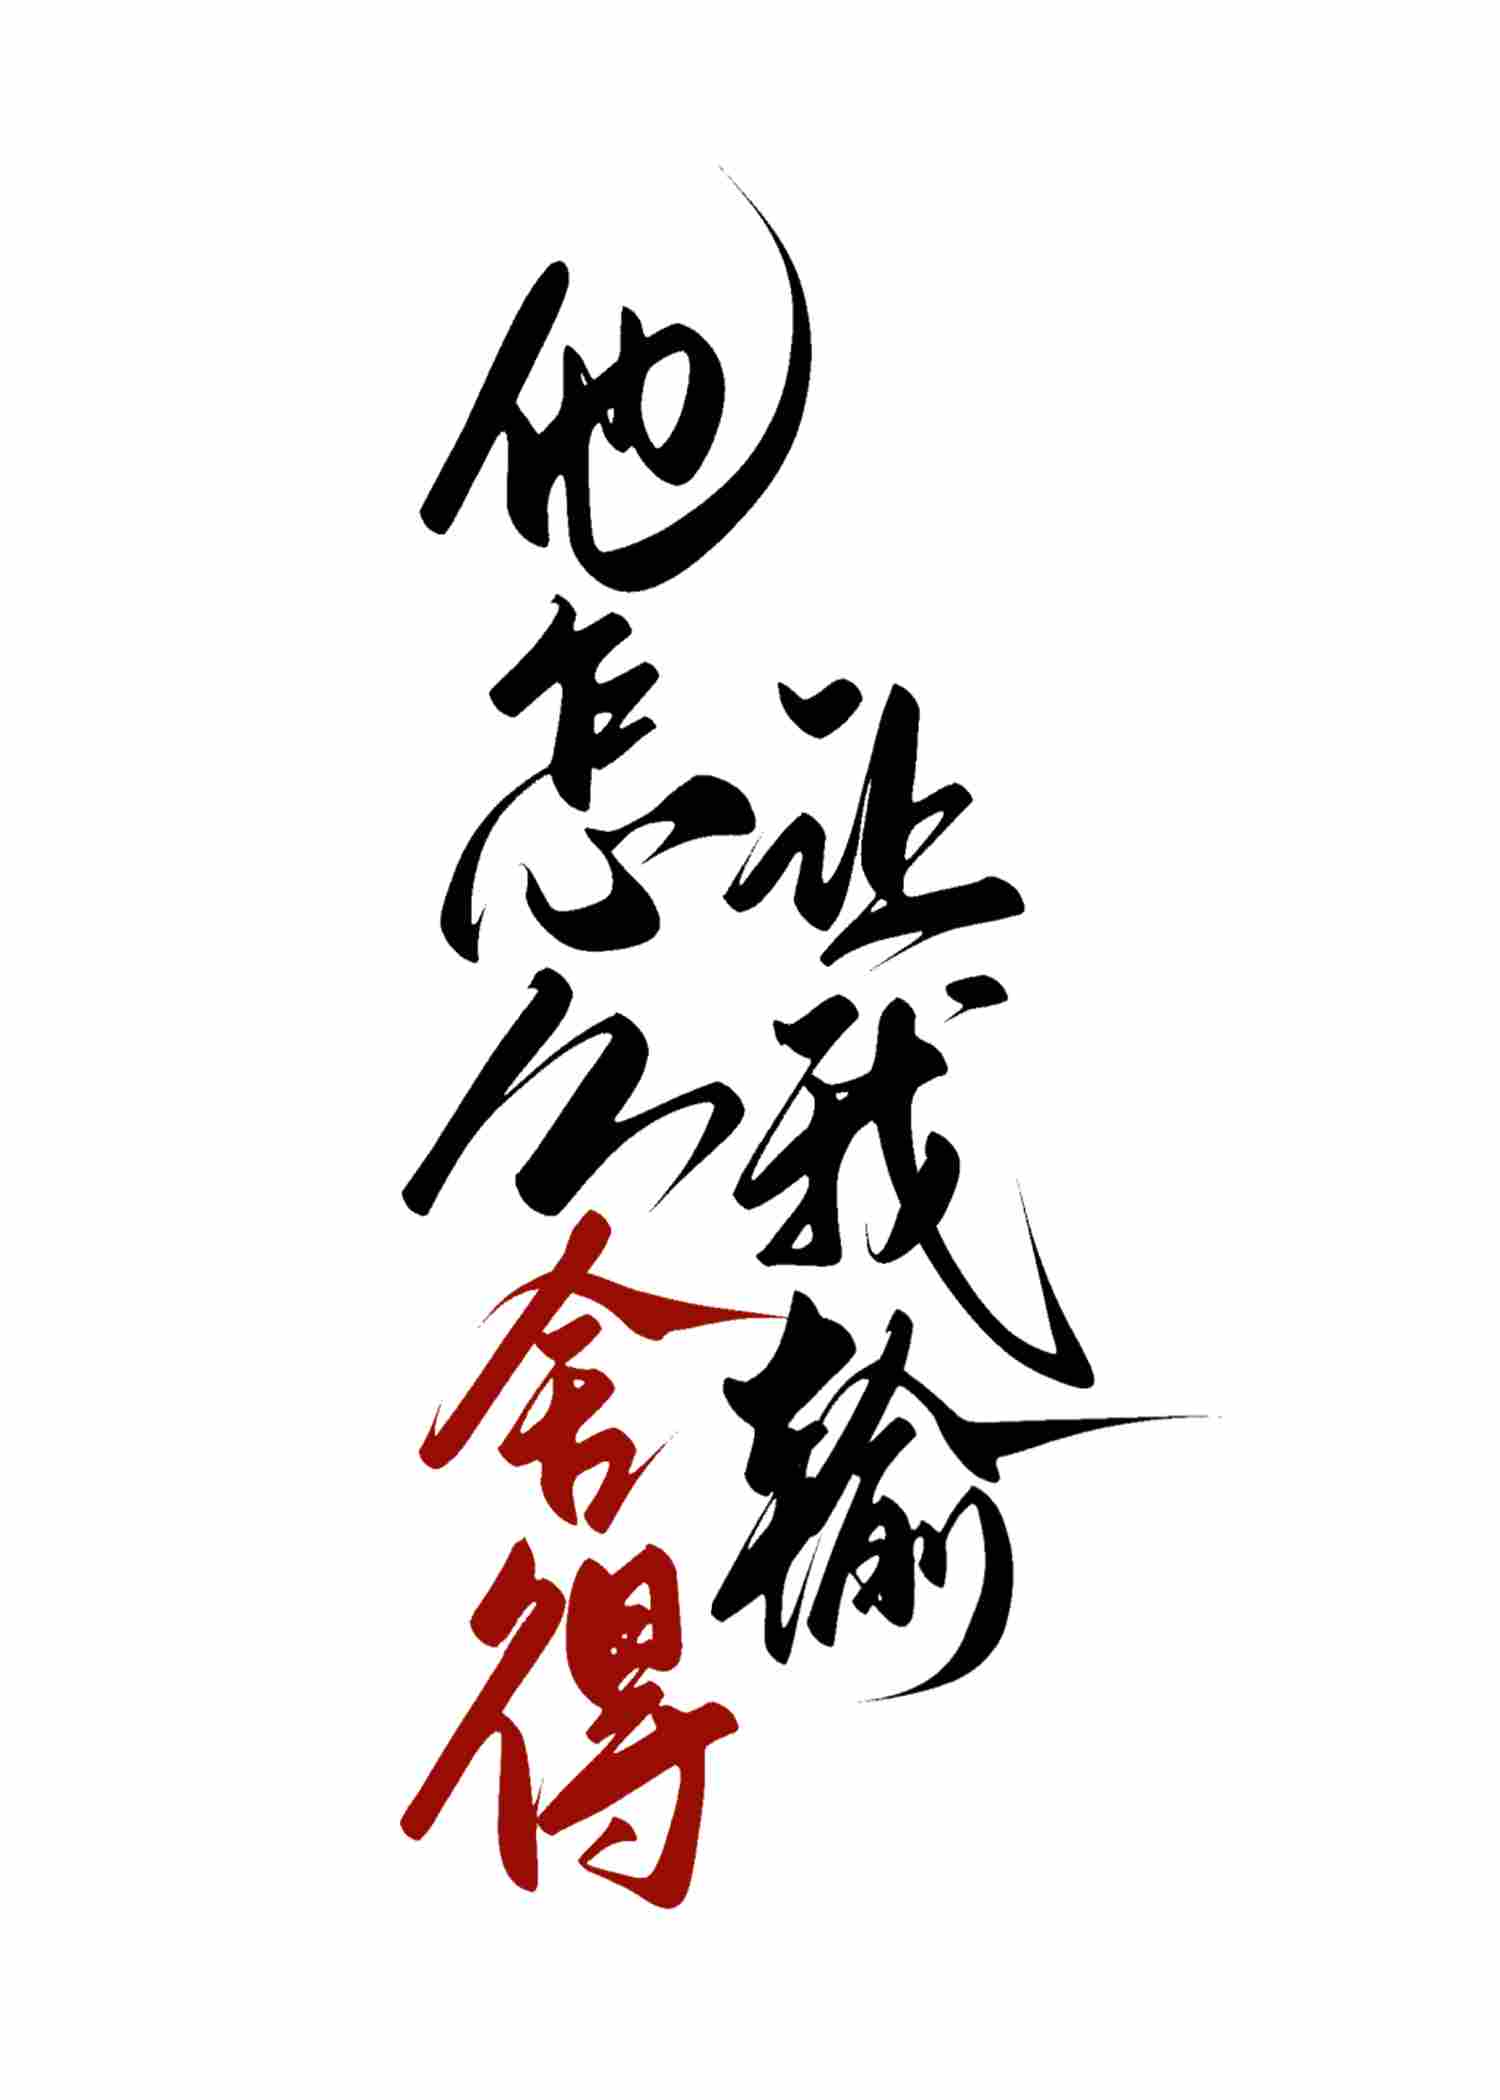 他怎么舍得
让我输